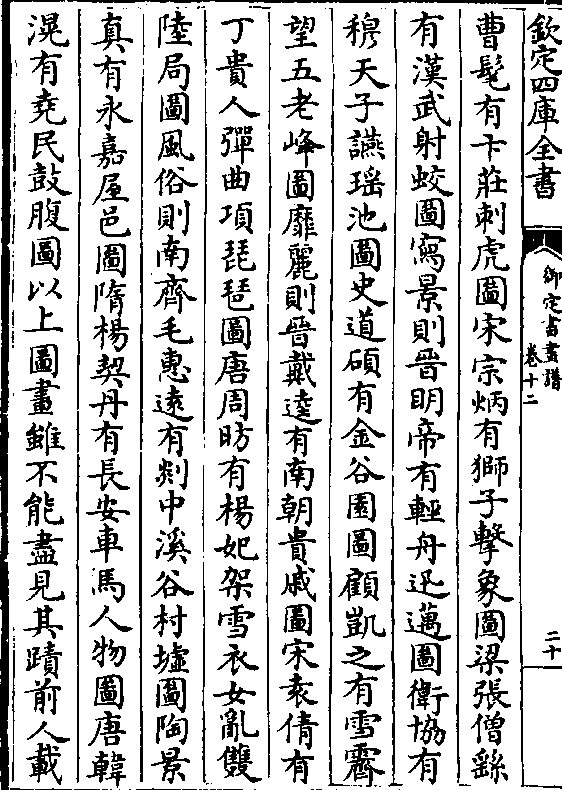 欽定四庫全書
御定書畫譜
卷十二
二十
曹髦有卞莊刺虎圖宋宗炳有獅子擊象圖梁張僧繇
有漢武射蛟圖寫景則晉明帝有輕舟迅邁圖衛協有
穆天子讌瑤池圖史道碩有金谷園圖顧凱之有雪霽
望五老峰圖靡麗則晉戴逵有南朝貴戚圖宋袁倩有
丁貴人彈曲項琵琶圖唐周昉有楊妃架雪衣女亂雙
陸局圖風俗則南齊毛惠遠有剡中溪谷村墟圖陶景
真有永嘉屋邑圖隋楊契丹有長安車馬人物圖唐韓
滉有堯民鼓腹圖以上圖畫雖不能盡見其蹟前人載